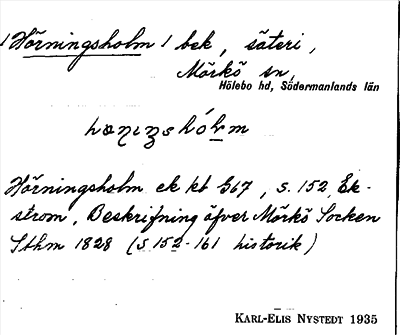 /Hörningsholm/ bek, säteri,
Mörkö sn,
Hölebo hd, Södermanlands län
Hörningsholm ek kt G67, s. 152, Ek-
strom, Beskrifning öfver Mörkö Socken
Sthm 1828 (s. 152-161 historik)
KARL-ELIS NYSTEDT 1935